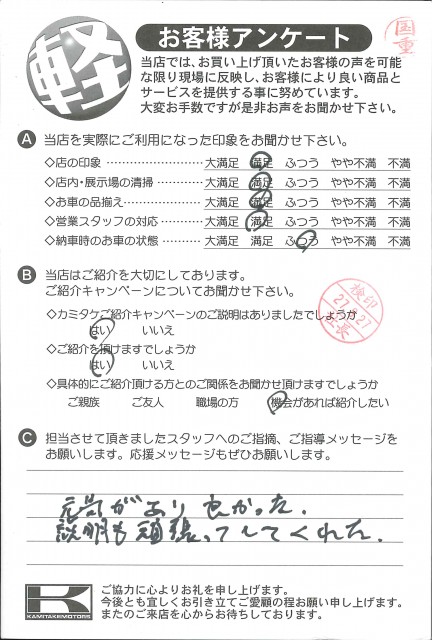 軽
お客様アンケート
国重
当店では、お買い上げ頂いたお客様の声を可能
な限り現場に反映し、お客様により良い商品と
サービスを提供する事に努めています。
大変お手数ですが是非お声をお聞かせ下さい。
A 当店を実際にご利用になった印象をお聞かせ下さい。
◇店の印象 ………………… 大満足 満足 ふつう やや不満 不満
◇店内・展示場の清掃 ………… 大満足 満足 ふつう やや不満 不満
◇お車の品揃え ……………… 大満足 満足 ふつう やや不満 不満
◇営業スタッフの対応 ………… 大満足 満足 ふつう やや不満 不満
◇納車時のお車の状態 ………… 大満足 満足 ふつう やや不満 不満
B 当店はご紹介を大切にしております。
ご紹介キャンペーンについてお聞かせ下さい。
◇カミタケご紹介キャンペーンのご説明はありましたでしょうか
はい いいえ
◇ご紹介を頂けますでしょうか
はい いいえ
◇具体的にご紹介頂ける方とのご関係をお聞かせ頂けますでしょうか
ご親族 ご友人 職場の方 機会があれば紹介したい
検印
社長
C 担当させて頂きましたスタッフへのご指摘、ご指導メッセージを
お願いします。応援メッセージもぜひお願いします。
元気があり良かった.
説明も頑張ってしてくれた.
KAMITAKEMOTORS
ご協力に心よりお礼を申し上げます。
今後とも宜しくお引き立てご愛顧の程お願い申し上げます。
またのご来店を心からお待ちしております。